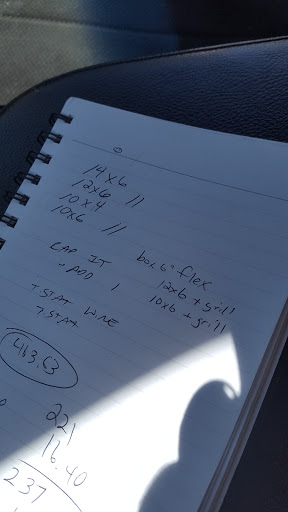 14x6
12x6 11
10x4
10x6 11
CAP IT
ADD 1
box 6" flex
12x6 + grill
10x6 + grill
TSTAT WIRE
TSTAT
463.63
221
16.40
237